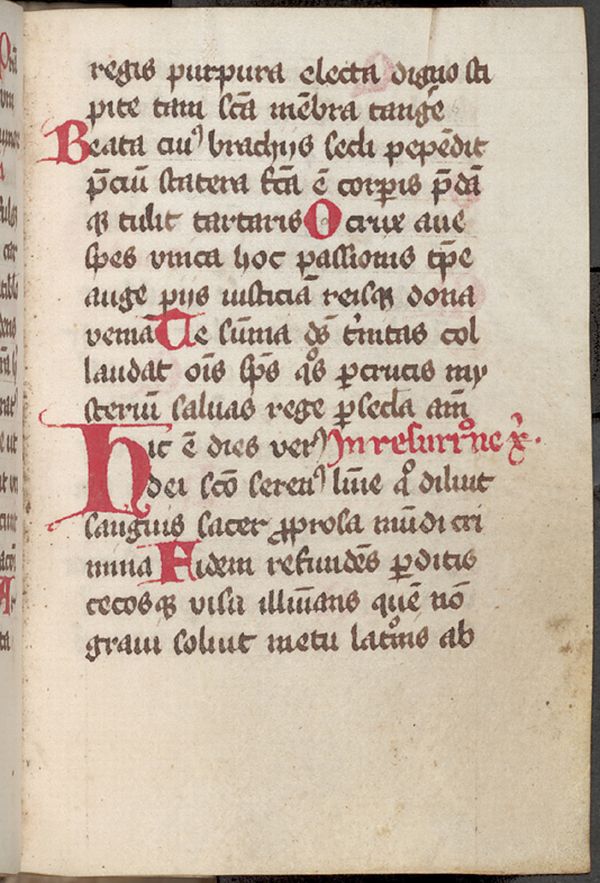 regis purpura electa digno sti
pite tam sc̄a mēbra tangē
Beata ciuꝰ brachijs secli pepēdit
p̄ciū statera fc̄a ē corpis p̄dā
qꝫ tulit tartaris O crux aue
spes vnica hoc passionis tp̄e
auge pijs iusticiā reisqꝫ dona
veniā Te sūma dꝰs t̓nitas col
laudat oīs sp̄s q̊s ꝑ crucis my
steriū saluas rege ꝑ secla am̄
Hic ē dies verꝰ In resurr̊ne x̓.
dei sc̄o serenꝰ lūīe q̊ diluit
sanguis sacer ꝓprosa mūdi cri
mina Fidem refundēs ꝑditis
cecosqꝫ visu illūīans quē nō
graui soluit metu latr̊nis ab